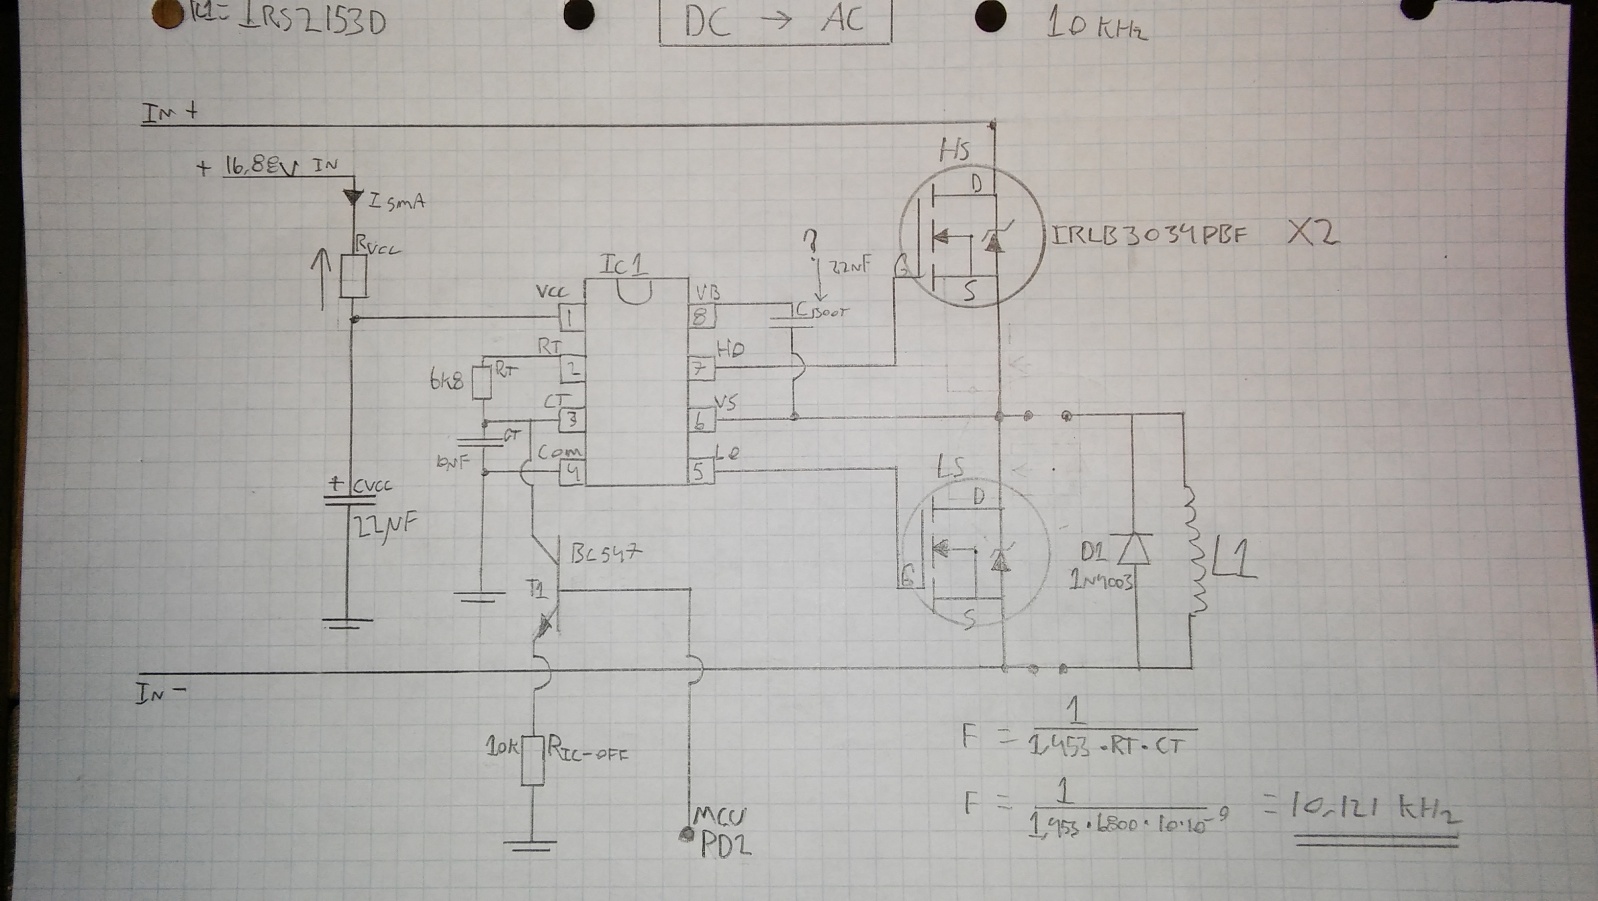 IC1= IRS2153D
DC → AC
10 KHz
IN +
+ 16,88V IN
I 5mA
RVCC
HS
D
G
S
IRLB3034PBF X2
IC1
?
22NF
VCC
VB
1
8
CBOOT
RT
HO
2
7
6k8
RT
CT
VS
3
6
CT
10NF
COM
LO
4
5
LS
D
G
S
+ CVCC
22µF
BC547
T1
D1
1N4003
L1
IN -
10k RIC-OFF
MCU
PD2
F = 1 / 1,453 · RT · CT
F = 1 / 1,453 · 6800 · 10·10⁻⁹ = 10,121 KHz